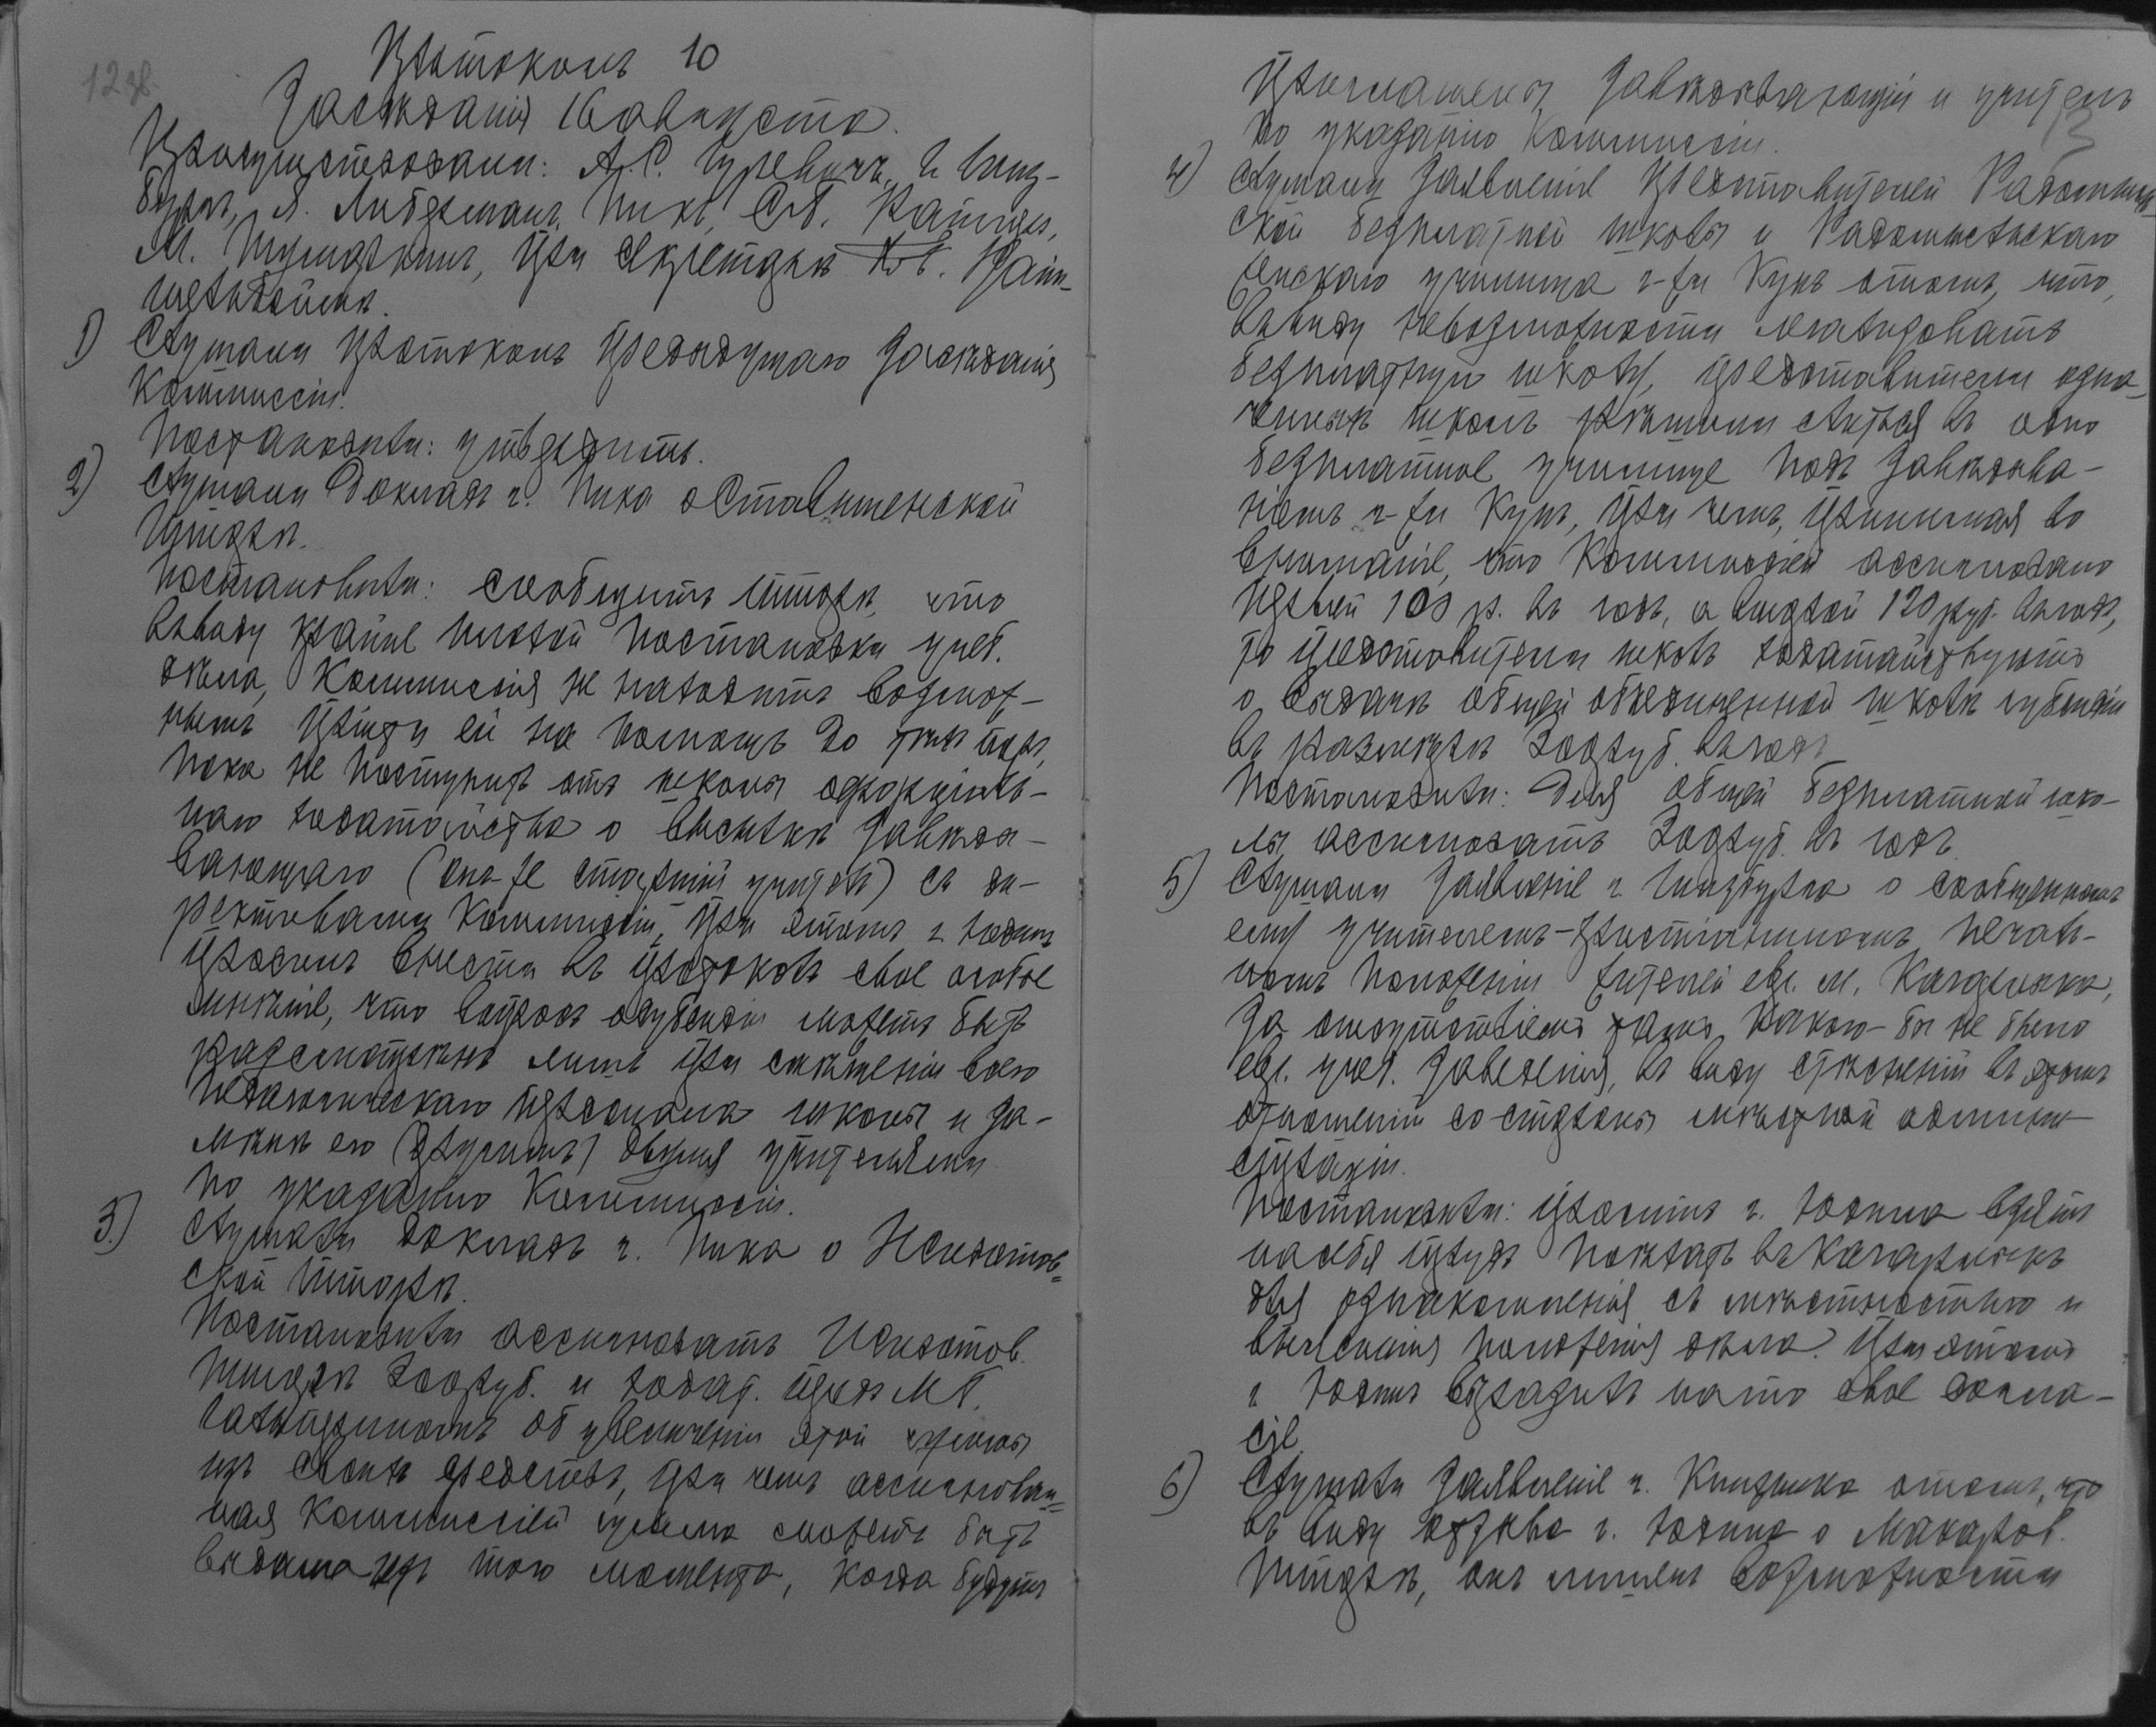 12 об.
Протоколъ 10
Засѣданія 16 августа.
Присутствовали: А.С. Гуревичъ, Гинц-
бургъ, Л. Либерманъ, Пикъ,
М. при секретарѣ
1) Слушали протоколъ предыдущаго засѣданія
Коммиссіи.
Постановили: утвердить.
2) Слушали докладъ г. Пика о Ставищенской
Т.торѣ.
Постановили: сообщить Т.торѣ, что
въ виду крайне плохой постановки учеб.
дѣла, Коммиссія не находитъ возмож-
нымъ прійти ей на помощь до тѣхъ поръ,
пока не поступитъ отъ школы
наго ходатайства о высылкѣ завѣды-
вающаго (онъ-же старшій учитель) съ ди-
рективами Коммиссіи, при этомъ г. Юдинъ
просилъ внести въ протоколъ свое особое
мнѣніе, что вопросъ о субсидіи можетъ быть
разсмотрѣнъ лишь при смѣщеніи всего
педагогическаго персонала школы и за-
мѣнѣ его (другимъ) двумя учителями
по указанію Коммиссіи.
3) Слушали докладъ г. Пика о
ской Т.торѣ.
Постановили ассигновать
Т.торѣ 200 руб. и ходат. предъ М.Б.
Гальперинымъ объ увеличеніи этой суммы
изъ своихъ средствъ, при чемъ ассигнован-
ная Коммиссіей сумма можетъ быть
выдана съ того момента, когда будутъ
13
приглашены завѣдывающій и учитель
по указанію Коммиссіи.
4) Слушали заявленіе представителей Радомысль-
ской безплатной школы и Радомысльскаго
женскаго училища г-жи Купъ о томъ, что,
въ виду невозможности легализовать
безплатную школу, представители озна-
ченныхъ школъ рѣшили слиться въ одно
безплатное училище подъ завѣдыва-
ніемъ г-жи Купъ, при чемъ, принимая во
вниманіе, что Коммиссіей ассигновано
первой 100 р. въ годъ, а второй 120 руб. въ годъ,
то представители школъ ходатайствуютъ
о выдачѣ общей объединенной школѣ субсидіи
въ размѣрѣ 200 руб. въ годъ.
Постановили: Для общей безплатной шко-
лы ассигновать 200 руб. въ годъ.
5) Слушали заявленіе г. Гинзбурга о сообщенномъ
ему учителемъ-христіаниномъ печаль-
номъ положеніи жителей евр. м. Кагарлыка,
за отсутствіемъ тамъ какого-бы не было
евр. учеб. заведенія, въ виду стѣсненій въ этомъ
отношеніи со стороны мѣстной админи-
страціи.
Постановили: просить г. Юдина взять
на себя трудъ поѣхать въ Кагарлыкъ
для ознакомленія съ мѣстностью и
выясненія положенія дѣла. При этомъ
г. Юдинъ выразилъ на то свое согла-
сіе.
6) Слушали заявленіе г. о томъ, что
въ виду отзыва г. Юдина о Макаров.
Т.торѣ, онъ лишенъ возможности